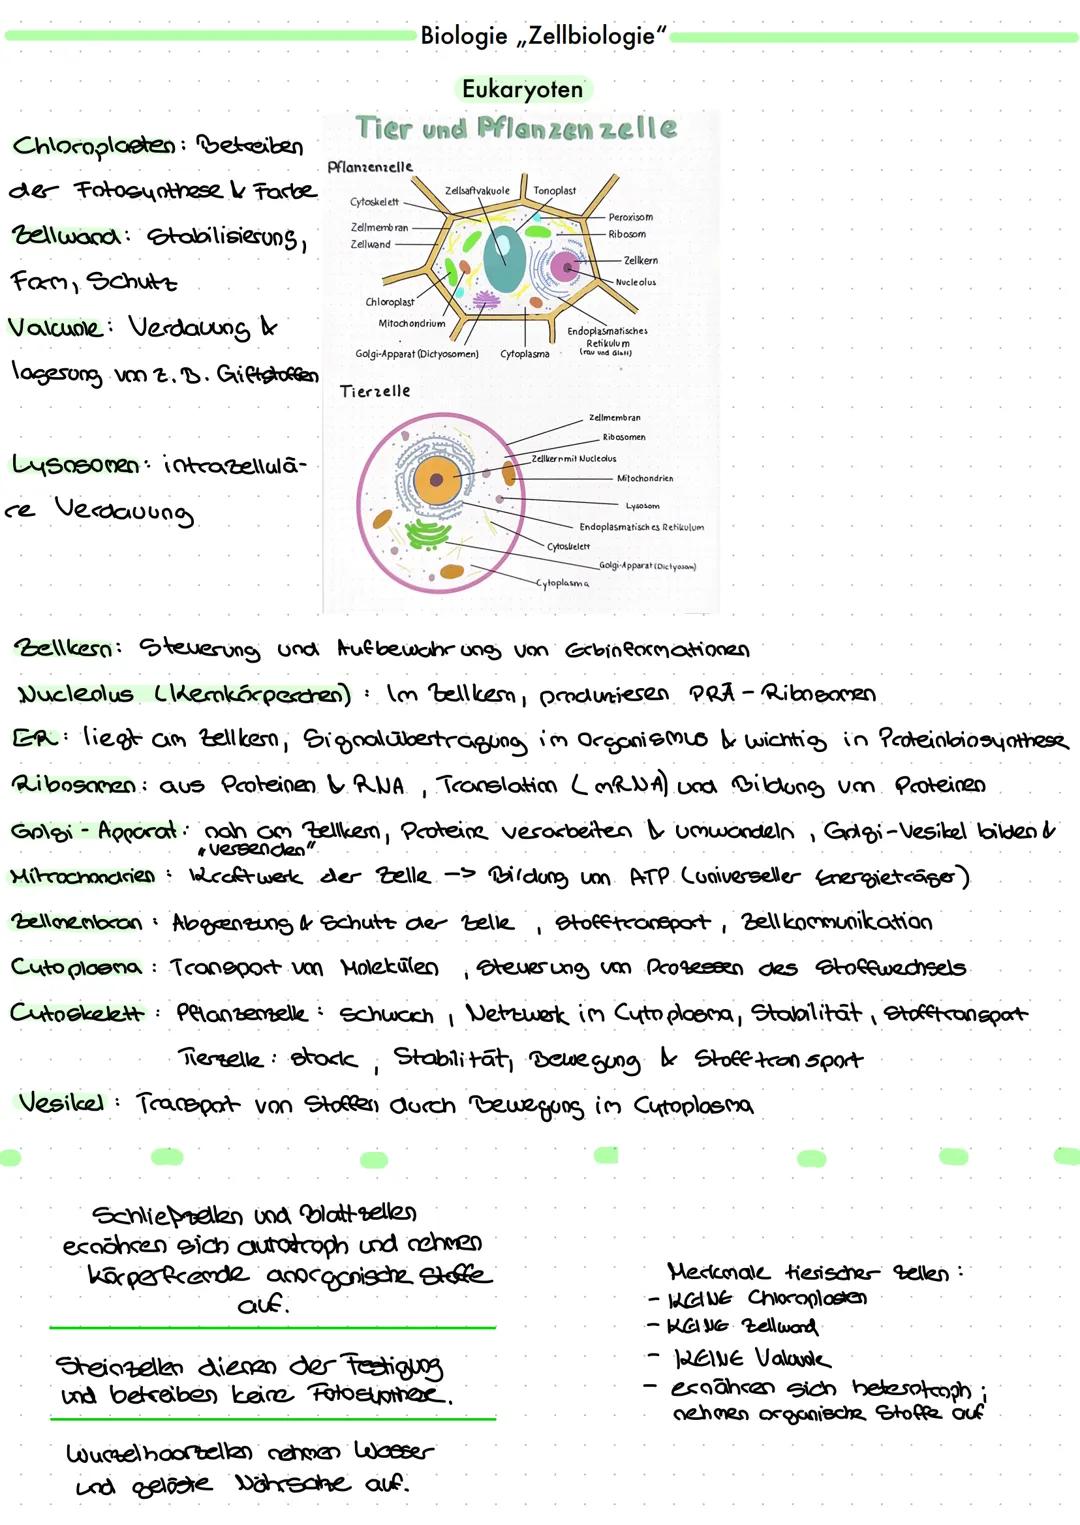 Biologie „Zellbiologie“
Eukaryoten
Chloroplasten: Betreiben
der Fotosynthese & Farbe
Zellwand: Stabilisierung,
Form, Schutz
Valcuole: Verdauung &
lagerung von z. B. Giftstoffen
Lysosomen: intrazellulä-
re Verdauung
Tier und Pflanzenzelle
Pflanzenzelle
Zellsaftvakuole
Tonoplast
Cytoskelett
Peroxisom
Zellmembran
Ribosom
Zellwand
Zellkern
Nucleolus
Chloroplast
Mitochondrium
Endoplasmatisches
Retikulum
(rau und Glatt)
Golgi-Apparat (Dictyosomen)
Cytoplasma
Tierzelle
Zellmembran
Ribosomen
Zellkern mit Nucleolus
Mitochondrien
Lysosom
Endoplasmatisches Retikulum
Cytoskelett
Golgi-Apparat (Dictyosom)
Cytoplasma
Zellkern: Steuerung und Aufbewahrung von Erbinformationen
Nucleolus (Kernkörperchen): Im Zellkern, produzieren PRÄ-Ribosomen
ER: liegt am Zellkern, Signalübertragung im Organismus & wichtig in Proteinbiosynthese
Ribosomen: aus Proteinen & RNA, Translation (mRNA) und Bildung von Proteinen
Golgi-Apparat: nah am Zellkern, Proteine verarbeiten & umwandeln, Golgi-Vesikel bilden &
„versenden“
Mitrochondrien: Kraftwerk der Zelle -> Bildung von ATP (universeller Energieträger)
Zellmembran: Abgrenzung & Schutz der Zelle, Stofftransport, Zellkommunikation
Cytoplasma: Transport von Molekülen, Steuerung von Prozessen des Stoffwechsels
Cytoskelett: Pflanzenzelle: schwach, Netzwerk im Cytoplasma, Stabilität, Stofftransport
Tierzelle: stark, Stabilität, Bewegung & Stofftransport
Vesikel: Transport von Stoffen durch Bewegung im Cytoplasma
Schließzellen und Blattzellen
ernähren sich autotroph und nehmen
körperfremde anorganische Stoffe
auf.
Steinzellen dienen der Festigung
und betreiben keine Fotosynthese.
Wurzelhaarzellen nehmen Wasser
und gelöste Nährsalze auf.
Merkmale tierischer Zellen:
- KEINE Chloroplasten
- KEINE Zellwand
- KEINE Valcuole
- ernähren sich heterotroph;
nehmen organische Stoffe auf